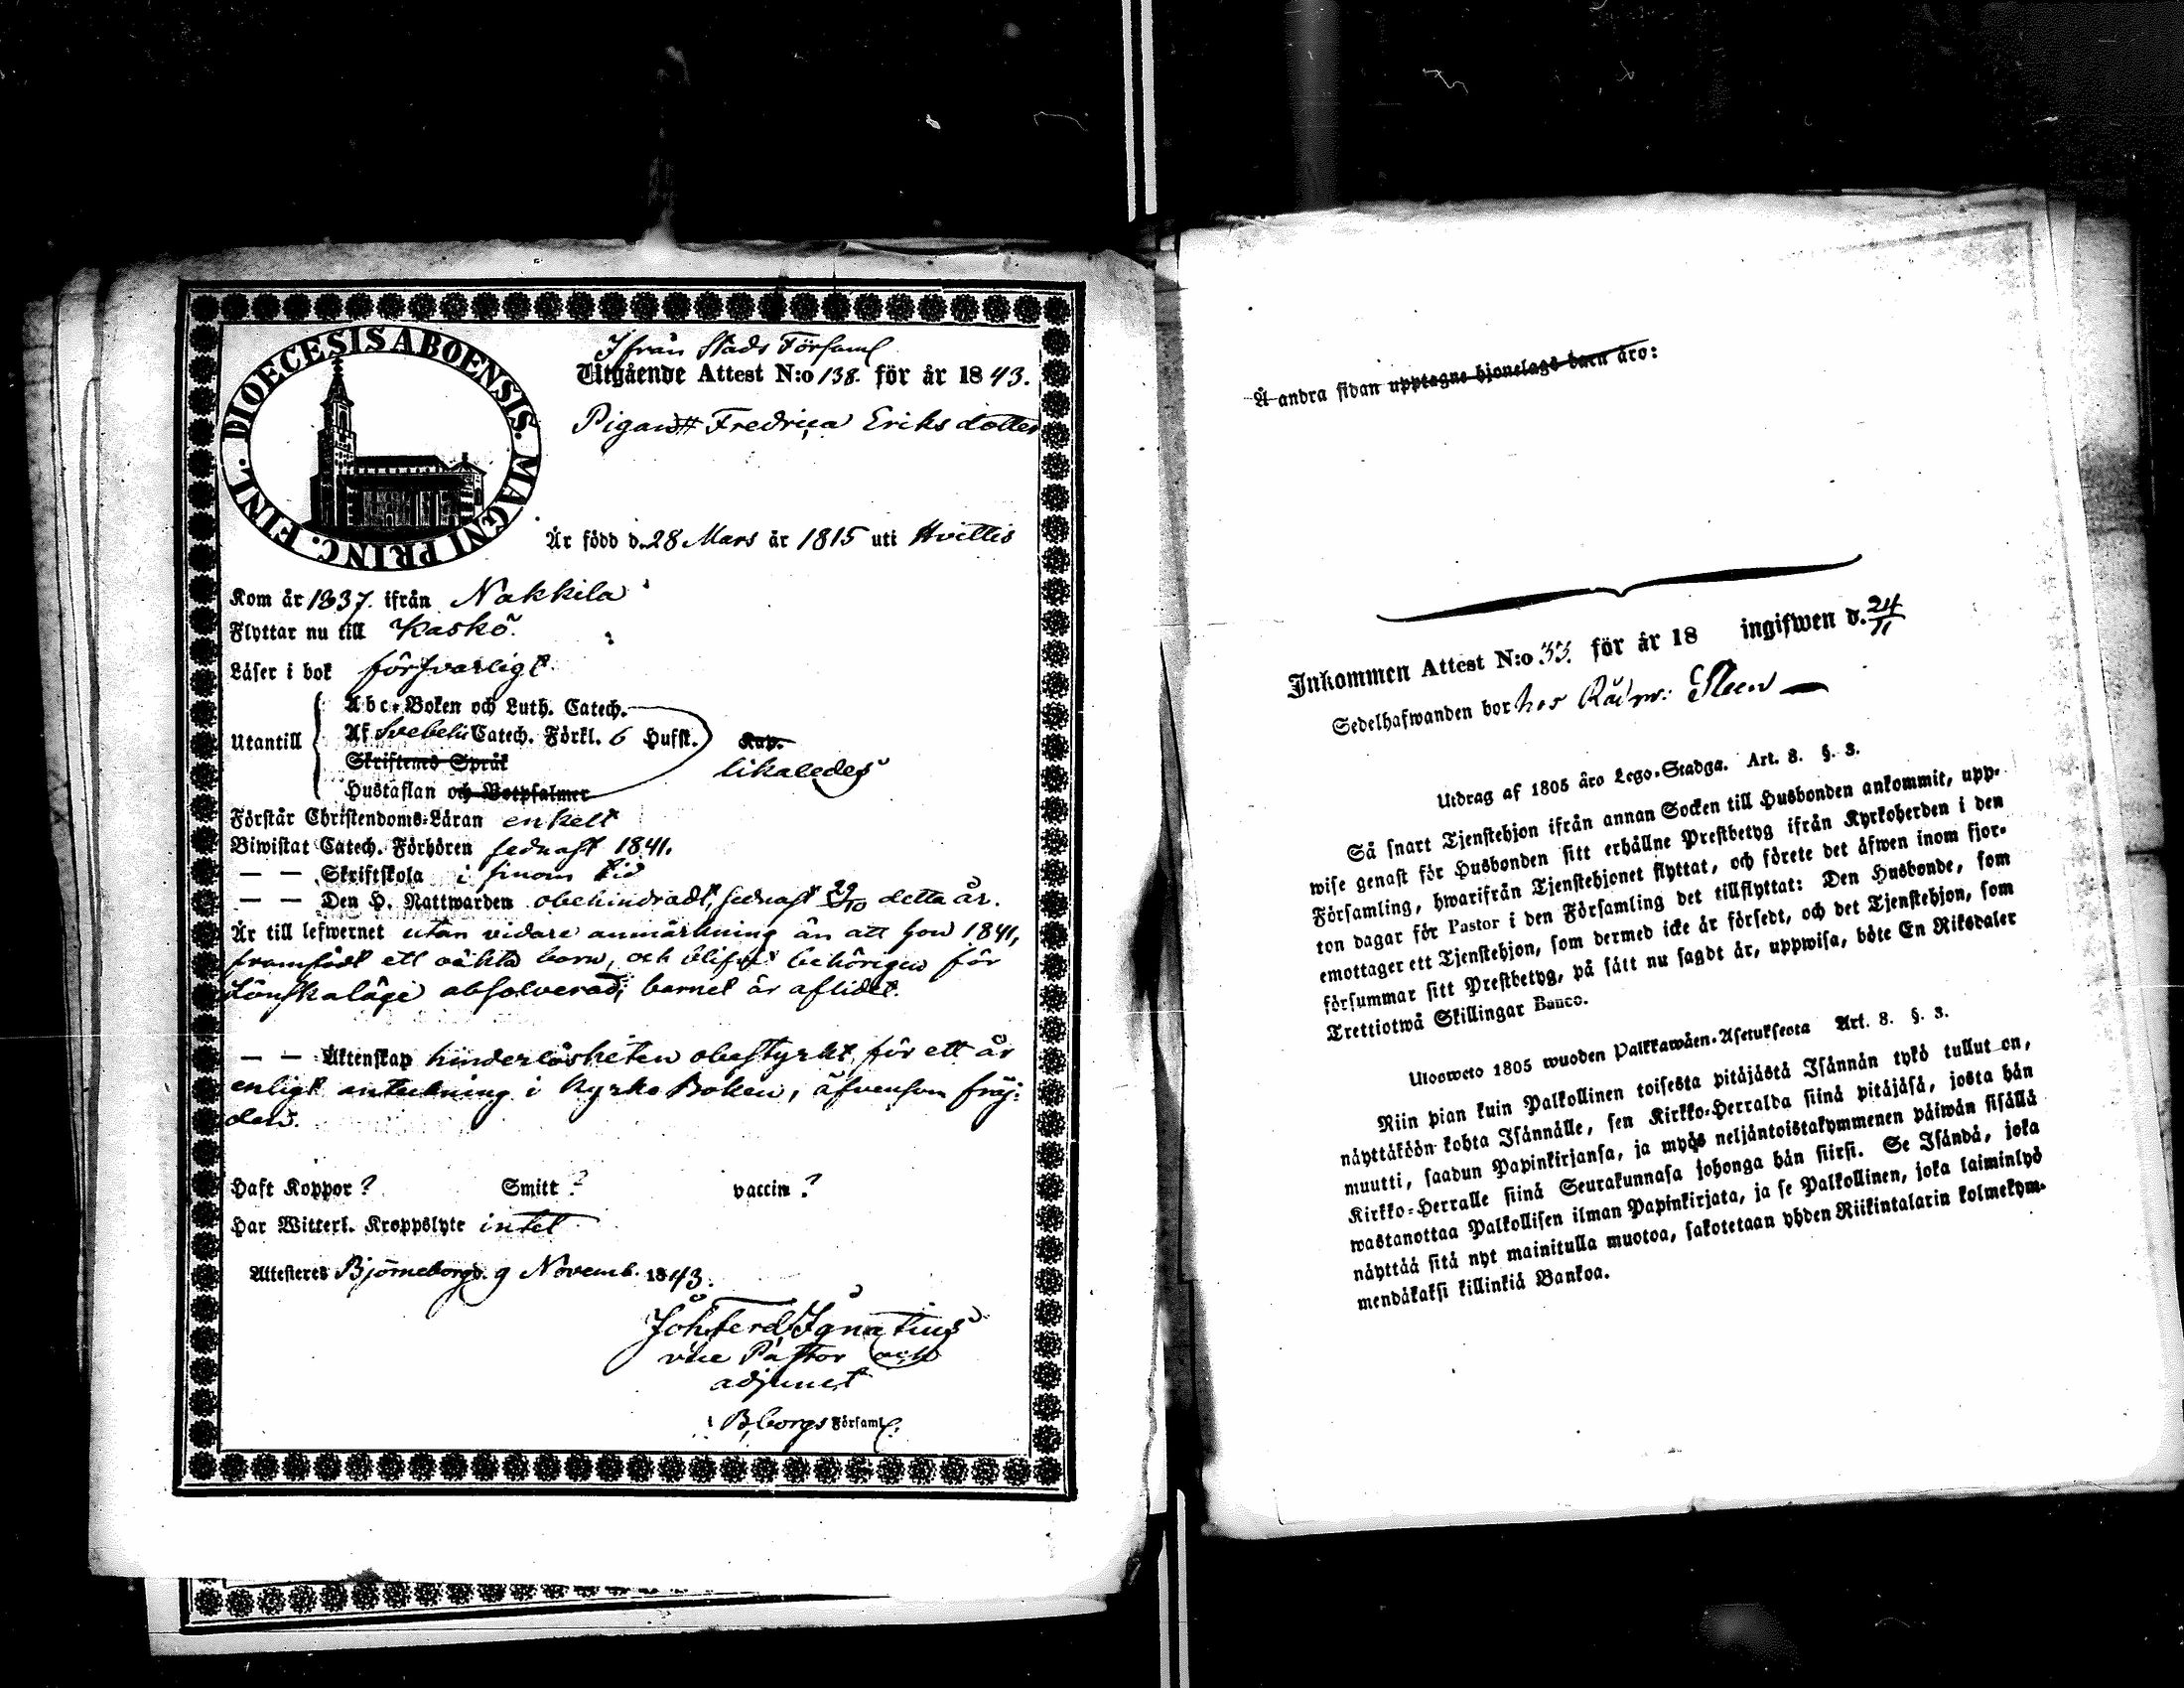 DIOECESIS ABOENSIS. MAGNI PRINC. FINL.
Ifrån Stads Församl
Utgående Attest N:o 138. för år 1843.
Pigan Fredrica Eriksdotter
Är född d. 28 Mars år 1815 uti Hvittis
Kom år 1837. ifrån Nakkila
Flyttar nu till Kaskö.
Läser i bok försvarligt
Abc-Boken och Luth. Catech.
Utantill Af Svebelii Catech. Förkl. 6 Hufst. Kap.
Skriftenes Språk likaledes
Hustaflan och Botpsalmer
Förstår Christendoms-Läran enkelt
Biwistat Catech. Förhören sednast 1841.
— — Skriftskola i sinom tid
— — Den H. Nattwarden obehindradt, sednast 29/10 detta år.
Är till lefwernet utan vidare anmärkning än att hon 1841,
framfödt ett oäkta barn, och blifvit behörigen för
Lönskaläge absolverad; barnet är aflidet.
— — Äktenskap hinderlösheten obestyrkt för ett år
enligt anteckning i Kyrko Boken, äfvensom fräj-
den.
Haft Koppor? Smitt? vaccin?
Har Witterl. Kroppslyte intet
Attesteras Björneborg d. 9 Novemb. 1843.
Joh. Ferd. Ignatius
vice Pastor och
adjunct
i B,borgs Församl.
Å andra sidan upptagne hjonelags barn äro:
Inkommen Attest N:o 33. för år 18 ingifwen d. 24/11
Sedelhafwanden bor hos Rådm: Steen —
Utdrag af 1805 års Lego-Stadga. Art. 8. §. 3.
Så snart Tjenstehjon ifrån annan Socken till Husbonden ankommit, upp-
wise genast för Husbonden sitt erhållne Prestbetyg ifrån Kyrkoherden i den
Församling, hwarifrån Tjenstehjonet flyttat, och förete det äfwen inom fjor-
ton dagar för Pastor i den Församling det tillflyttat: Den Husbonde, som
emottager ett Tjenstehjon, som dermed icke är försedt, och det Tjenstehjon, som
försummar sitt Prestbetyg, på sätt nu sagdt är, uppwisa, böte En Riksdaler
Trettiotwå Skillingar Banco.
Ulosweto 1805 wuoden Palkkawäen-Asetuksesta Art. 8. §. 3.
Niin pian kuin Palkollinen toisesta pitäjästä Isännän tykö tullut on,
näyttäköön kohta Isännälle, sen Kirkko-Herralda siinä pitäjäsä, josta hän
muutti, saadun Papinkirjansa, ja myös neljäntoistakymmenen päiwän sisällä
Kirkko-Herralle siinä Seurakunnasa johonga hän siirsi. Se Isändä, joka
wastanottaa Palkollisen ilman Papinkirjata, ja se Palkollinen, joka laiminlyö
näyttää sitä nyt mainitulla muotoa, sakotetaan yhden Riikintalarin kolmekym-
mendäkaksi killinkiä Bankoa.